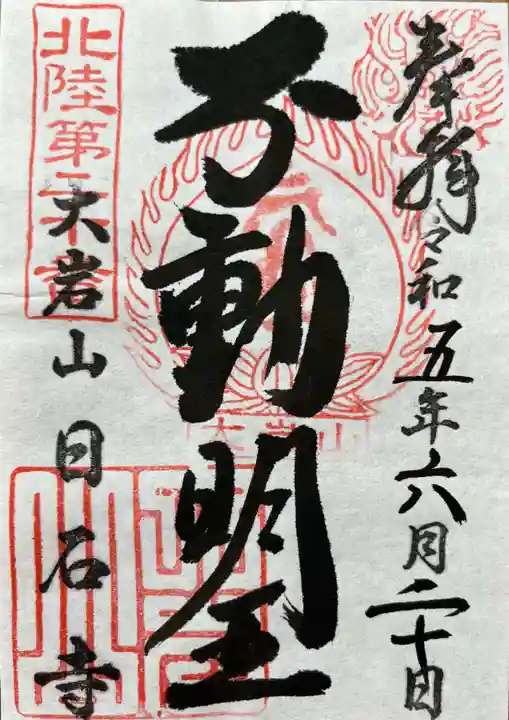 奉拝 令和五年六月二十日
不動明王
大岩山
北陸第
大岩山日石寺